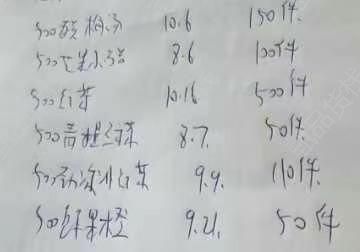 500酸梅汤 10.6 150件
500芒果小酪 8.6 100件
500红茶 10.16 500件
500青桔绿茶 8.7. 50件.
500劲凉冰红茶 9.9. 110件.
500鲜果橙 9.21. 50件